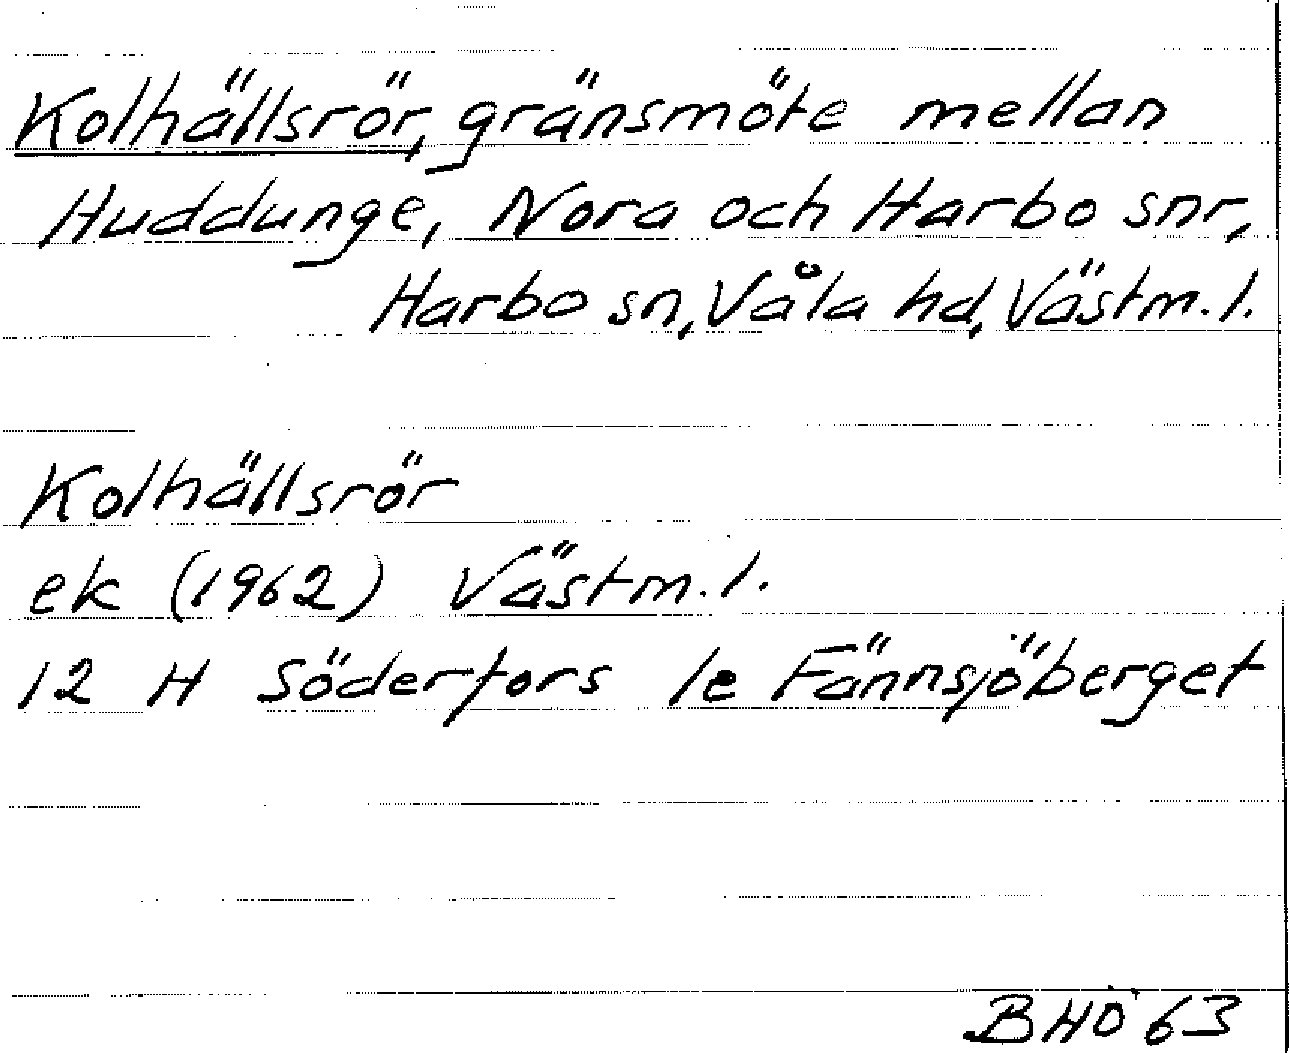 Kolhällsrör, gränsmöte mellan
Huddunge, Nora och Harbo snr,
Harbo sn, Våla hd, Västm. l.
Kolhällsrör
ek (1962) Västm. l.
12 H Söderfors 1e Fännsjöberget
BHÖ 63